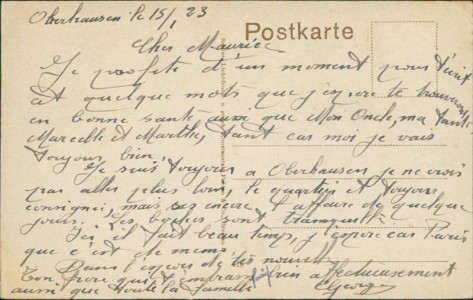 Oberhausen le 15/1 23
Postkarte
Cher Maurice
Je profite d'un moment pour t'écrire
cet quelque mots que j'espère te trouverons
en bonne santé ainsi que Mon Oncle, ma tante
Marcelle et Marthe, tant cas moi je vais
toujours bien.
Je suis toujours a Oberhausen je ne crois
pas aller plus loin, le quartier est toujours
consigné, mais ces encore l'affaire de quelque
jours. Les boches sont tranquille
Ici il fait beau temps, j'espère cas Paris
que c'est de meme.
Dans l'espoir de tes nouvelles
ton frère qui t'embrasse bien affectueusement
ainsi que toute la famille Georges